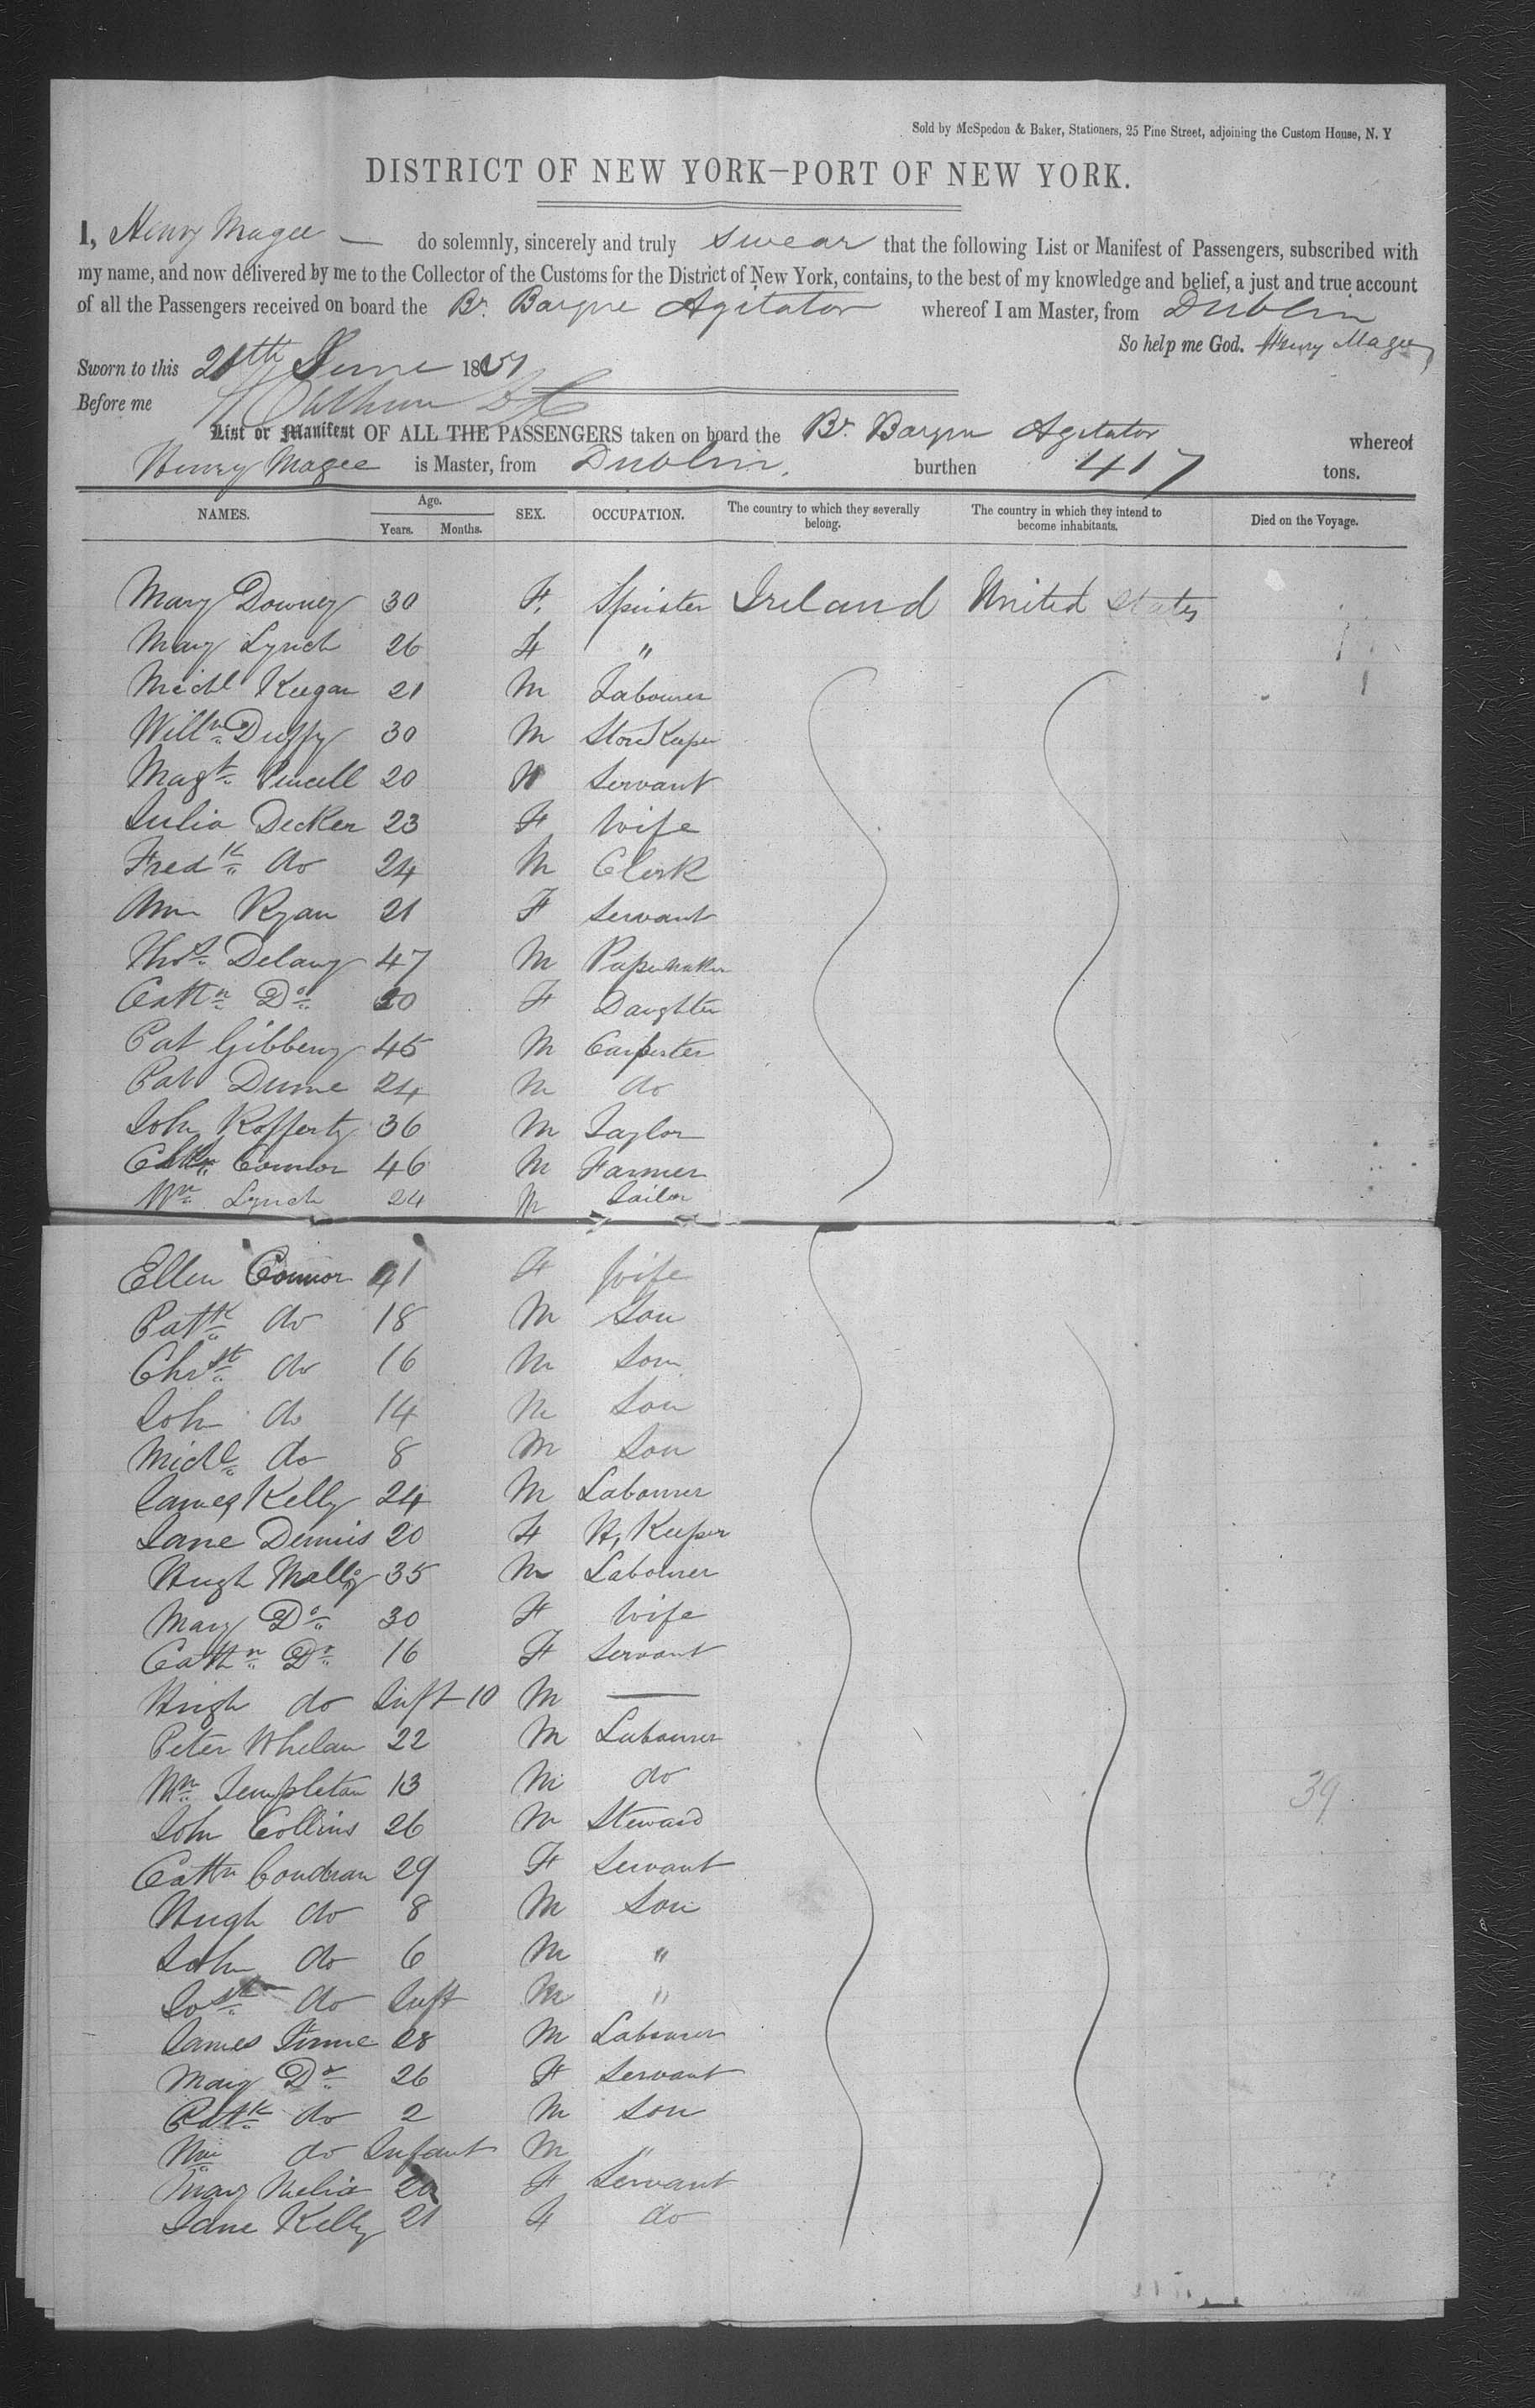 Sold by McSpedon & Baker, Stationers, 25 Pine Street, adjoining the Custom House, N. Y
DISTRICT OF NEW YORK—PORT OF NEW YORK.
I, Henry Magee — do solemnly, sincerely and truly swear that the following List or Manifest of Passengers, subscribed with
my name, and now delivered by me to the Collector of the Customs for the District of New York, contains, to the best of my knowledge and belief, a just and true account
of all the Passengers received on board the Br. Barque Agitator whereof I am Master, from Dublin
So help me God. Henry Magee
Sworn to this June 1851
Before me
List or Manifest OF ALL THE PASSENGERS taken on board the Br. Barque Agitator whereof
Henry Magee is Master, from Dublin, burthen 417 tons.
NAMES. Age. Years. Months. SEX. OCCUPATION. The country to which they severally belong. The country in which they intend to become inhabitants. Died on the Voyage.
Mary Downey 30 F. Spinster Ireland United States
Mary Lynch 26 F "
Michl Keegan 21 M Labourer
Willm Duffy 30 M Store Keeper
Magt Purcell 20 Servant
Julia Decker 23 F Wife
Fredk do 24 M Clerk
Ann Ryan 21 F Servant
Thos Delany 47 M Papermaker
Cathn Do 20 F Daughter
Pat Gibbeny 45 M Carpenter
Pat Dunne 24 M do
John Rafferty 36 M Taylor
Connor 46 M Farmer
Wm Lynch 24 M Sailor
Ellen Connor 41 F Wife
Patk do 18 M Son
Chrst do 16 M Son
John do 14 M Son
Michl do 8 M Son
James Kelly 24 M Labourer
Jane Dennis 20 F H, Keeper
Hugh Malloy 35 M Labourer
Mary Do 30 F Wife
Cathn Do 16 F Servant
Hugh do Inft 10 M —
Peter Whelan 22 M Labourer
Wm Templeton 13 M do
John Collins 26 M Steward 39
Cathn Condran 29 F Servant
Hugh do 8 M Son
John do 6 M "
do Inft M "
James Finne 28 M Labourer
Mary Do 26 F Servant
Patk do 2 M Son
Wm do Infant M "
Mary Melia F Servant
Jane Kelly 21 F do